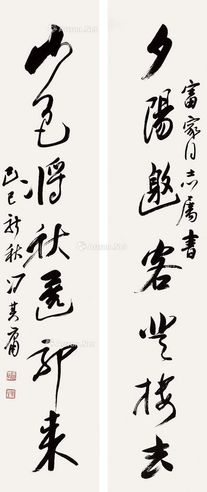 富家同志屬書
夕陽邀客登樓去
山色將秋遶郭來
己巳新秋冯其庸